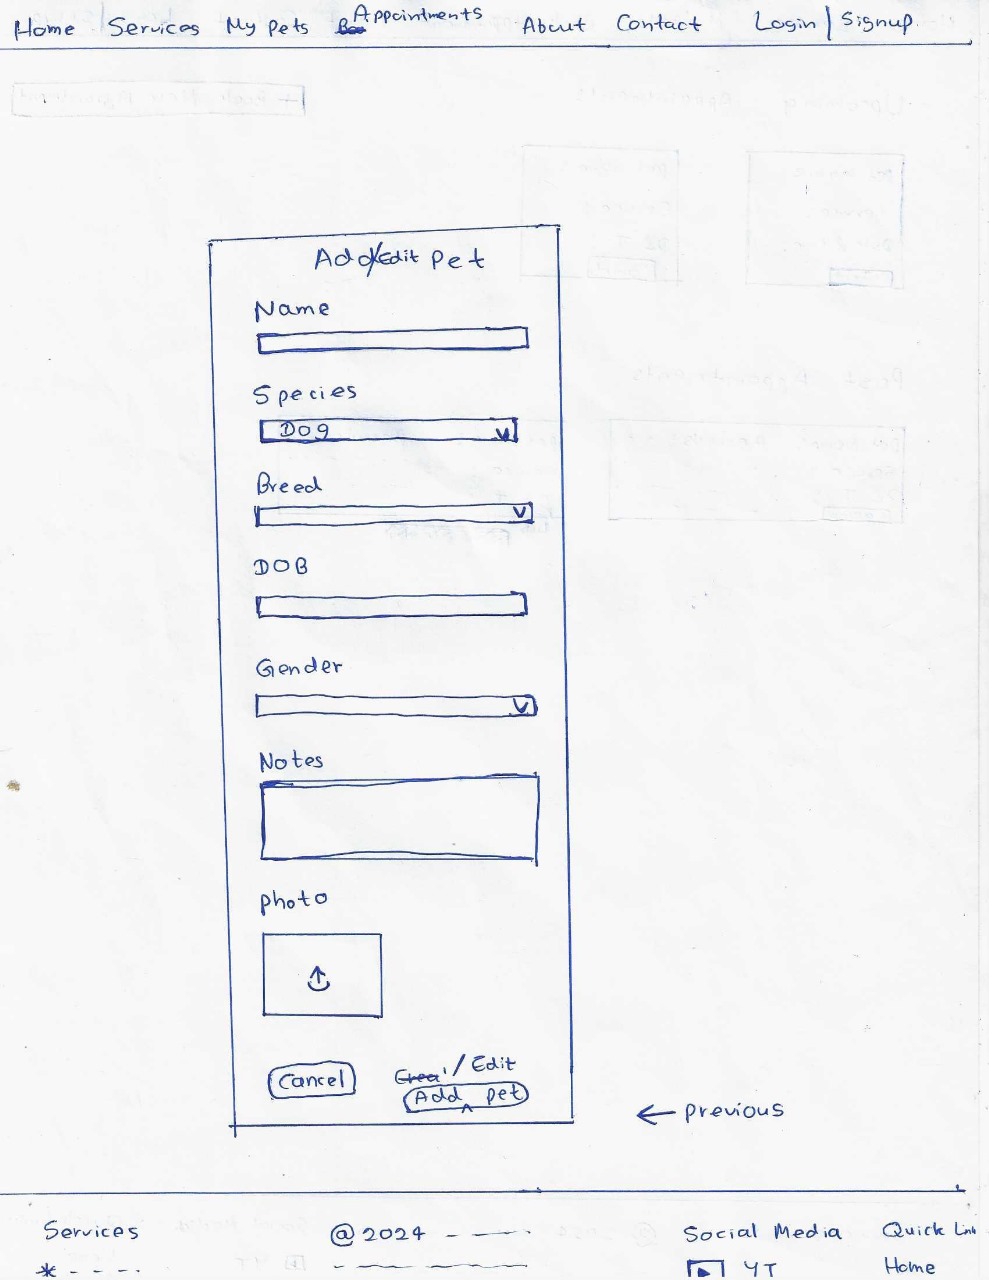 Home Services My Pets Appointments About Contact Login | Signup
Add/Edit Pet
Name
Species
Dog
Breed
DOB
Gender
Notes
photo
Cancel
/ Edit
Add pet
← previous
Services @ 2024 Social Media Quick Link
YT Home